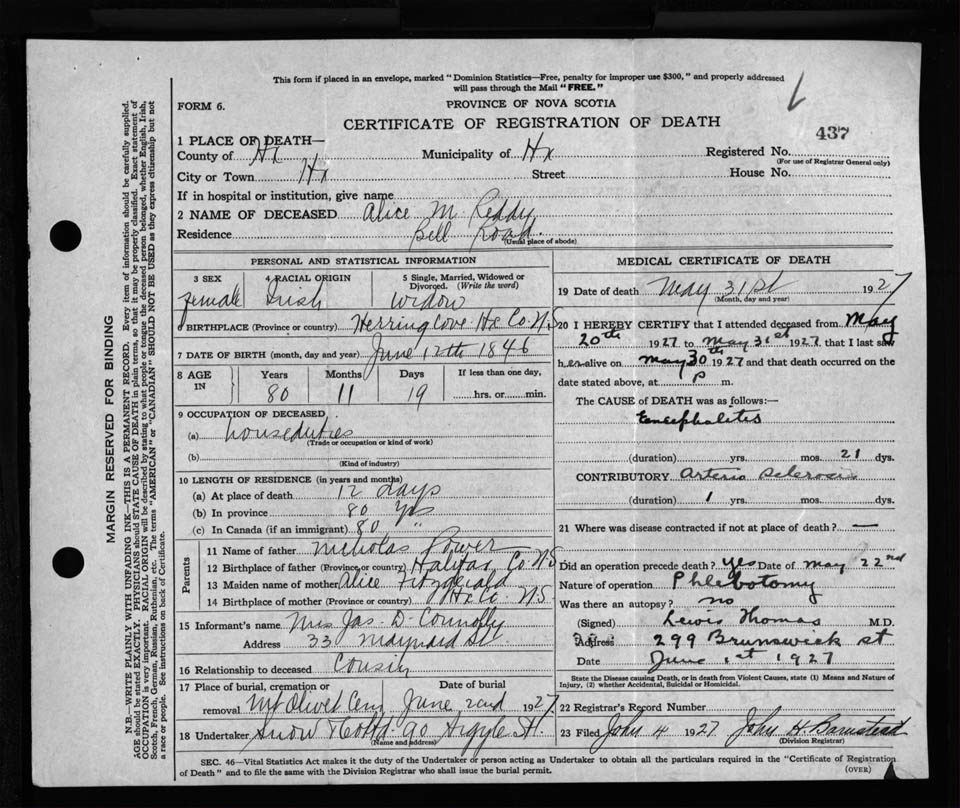 This form if placed in an envelope, marked "Dominion Statistics—Free, penalty for improper use $300," and properly addressed
will pass through the Mail "FREE."
FORM 6.
PROVINCE OF NOVA SCOTIA
CERTIFICATE OF REGISTRATION OF DEATH
437
1 PLACE OF DEATH—
County of Hx Municipality of Hx Registered No.
(For use of Registrar General only)
City or Town Hx Street House No.
If in hospital or institution, give name
2 NAME OF DECEASED Alice M Reddy
Residence Bell Road
(Usual place of abode)
PERSONAL AND STATISTICAL INFORMATION
3 SEX 4 RACIAL ORIGIN 5 Single, Married, Widowed or Divorced. (Write the word)
female Irish widow
6 BIRTHPLACE (Province or country) Herring Cove Hx Co. N.S
7 DATE OF BIRTH (month, day and year) June 12th 1846
8 AGE IN Years Months Days If less than one day,
80 11 19 hrs. or min.
9 OCCUPATION OF DECEASED
(a) houseduties
(Trade or occupation or kind of work)
(b)
(Kind of industry)
10 LENGTH OF RESIDENCE (in years and months)
(a) At place of death 12 days
(b) In province 80 yrs
(c) In Canada (if an immigrant) 80 "
Parents
11 Name of father Nicholas Power
12 Birthplace of father (Province or country) Halifax Co NS
13 Maiden name of mother Alice Fitzgerald
14 Birthplace of mother (Province or country) Hx Co. N.S
15 Informant's name Mrs Jas. D. Connolly
Address 33 Maynard St.
16 Relationship to deceased Cousin
17 Place of burial, cremation or removal Date of burial
Mt Olivet Cem June 2nd 1927
18 Undertaker Snow & Co Ltd 90 Argyle St.
(Name and address)
MEDICAL CERTIFICATE OF DEATH
19 Date of death May 31st 1927
(Month, day and year)
20 I HEREBY CERTIFY that I attended deceased from May
20th 1927 to May 31st 1927 that I last saw
her alive on May 30th 1927 and that death occurred on
date stated above, at P m.
The CAUSE of DEATH was as follows:—
Encephalitis
(duration) yrs. mos. 21 dys.
CONTRIBUTORY Arterio Sclerosis
(duration) 1 yrs. mos. dys.
21 Where was disease contracted if not at place of death? —
Did an operation precede death? yes Date of May 22nd
Nature of operation Phlebotomy
Was there an autopsy? no
(Signed) Lewis Thomas M.D.
Address 299 Brunswick st
Date June 1st 1927
State the Disease causing Death, or in death from Violent Causes, state (1) Means and Nature of
Injury, (2) whether Accidental, Suicidal or Homicidal.
22 Registrar's Record Number
23 Filed John 4 1927 John H Barnstead
(Division Registrar)
SEC. 46—Vital Statistics Act makes it the duty of the Undertaker or person acting as Undertaker to obtain all the particulars required in the "Certificate of Registration
of Death" and to file the same with the Division Registrar who shall issue the burial permit.
(OVER)
MARGIN RESERVED FOR BINDING
N.B.—WRITE PLAINLY WITH UNFADING INK—THIS IS A PERMANENT RECORD. Every item of information should be carefully supplied.
AGE should be stated EXACTLY. PHYSICIANS should STATE CAUSE OF DEATH in plain terms, so that it may be properly classified. Exact statement of
OCCUPATION is very important. RACIAL ORIGIN will be described by stating to what people or tongue the deceased person belonged, whether English, Irish,
Scotch, French, German, Russian, Ruthenian, etc. The terms "AMERICAN" or "CANADIAN" SHOULD NOT BE USED as they express citizenship but not
a race or people. See instructions on back of Certificate.